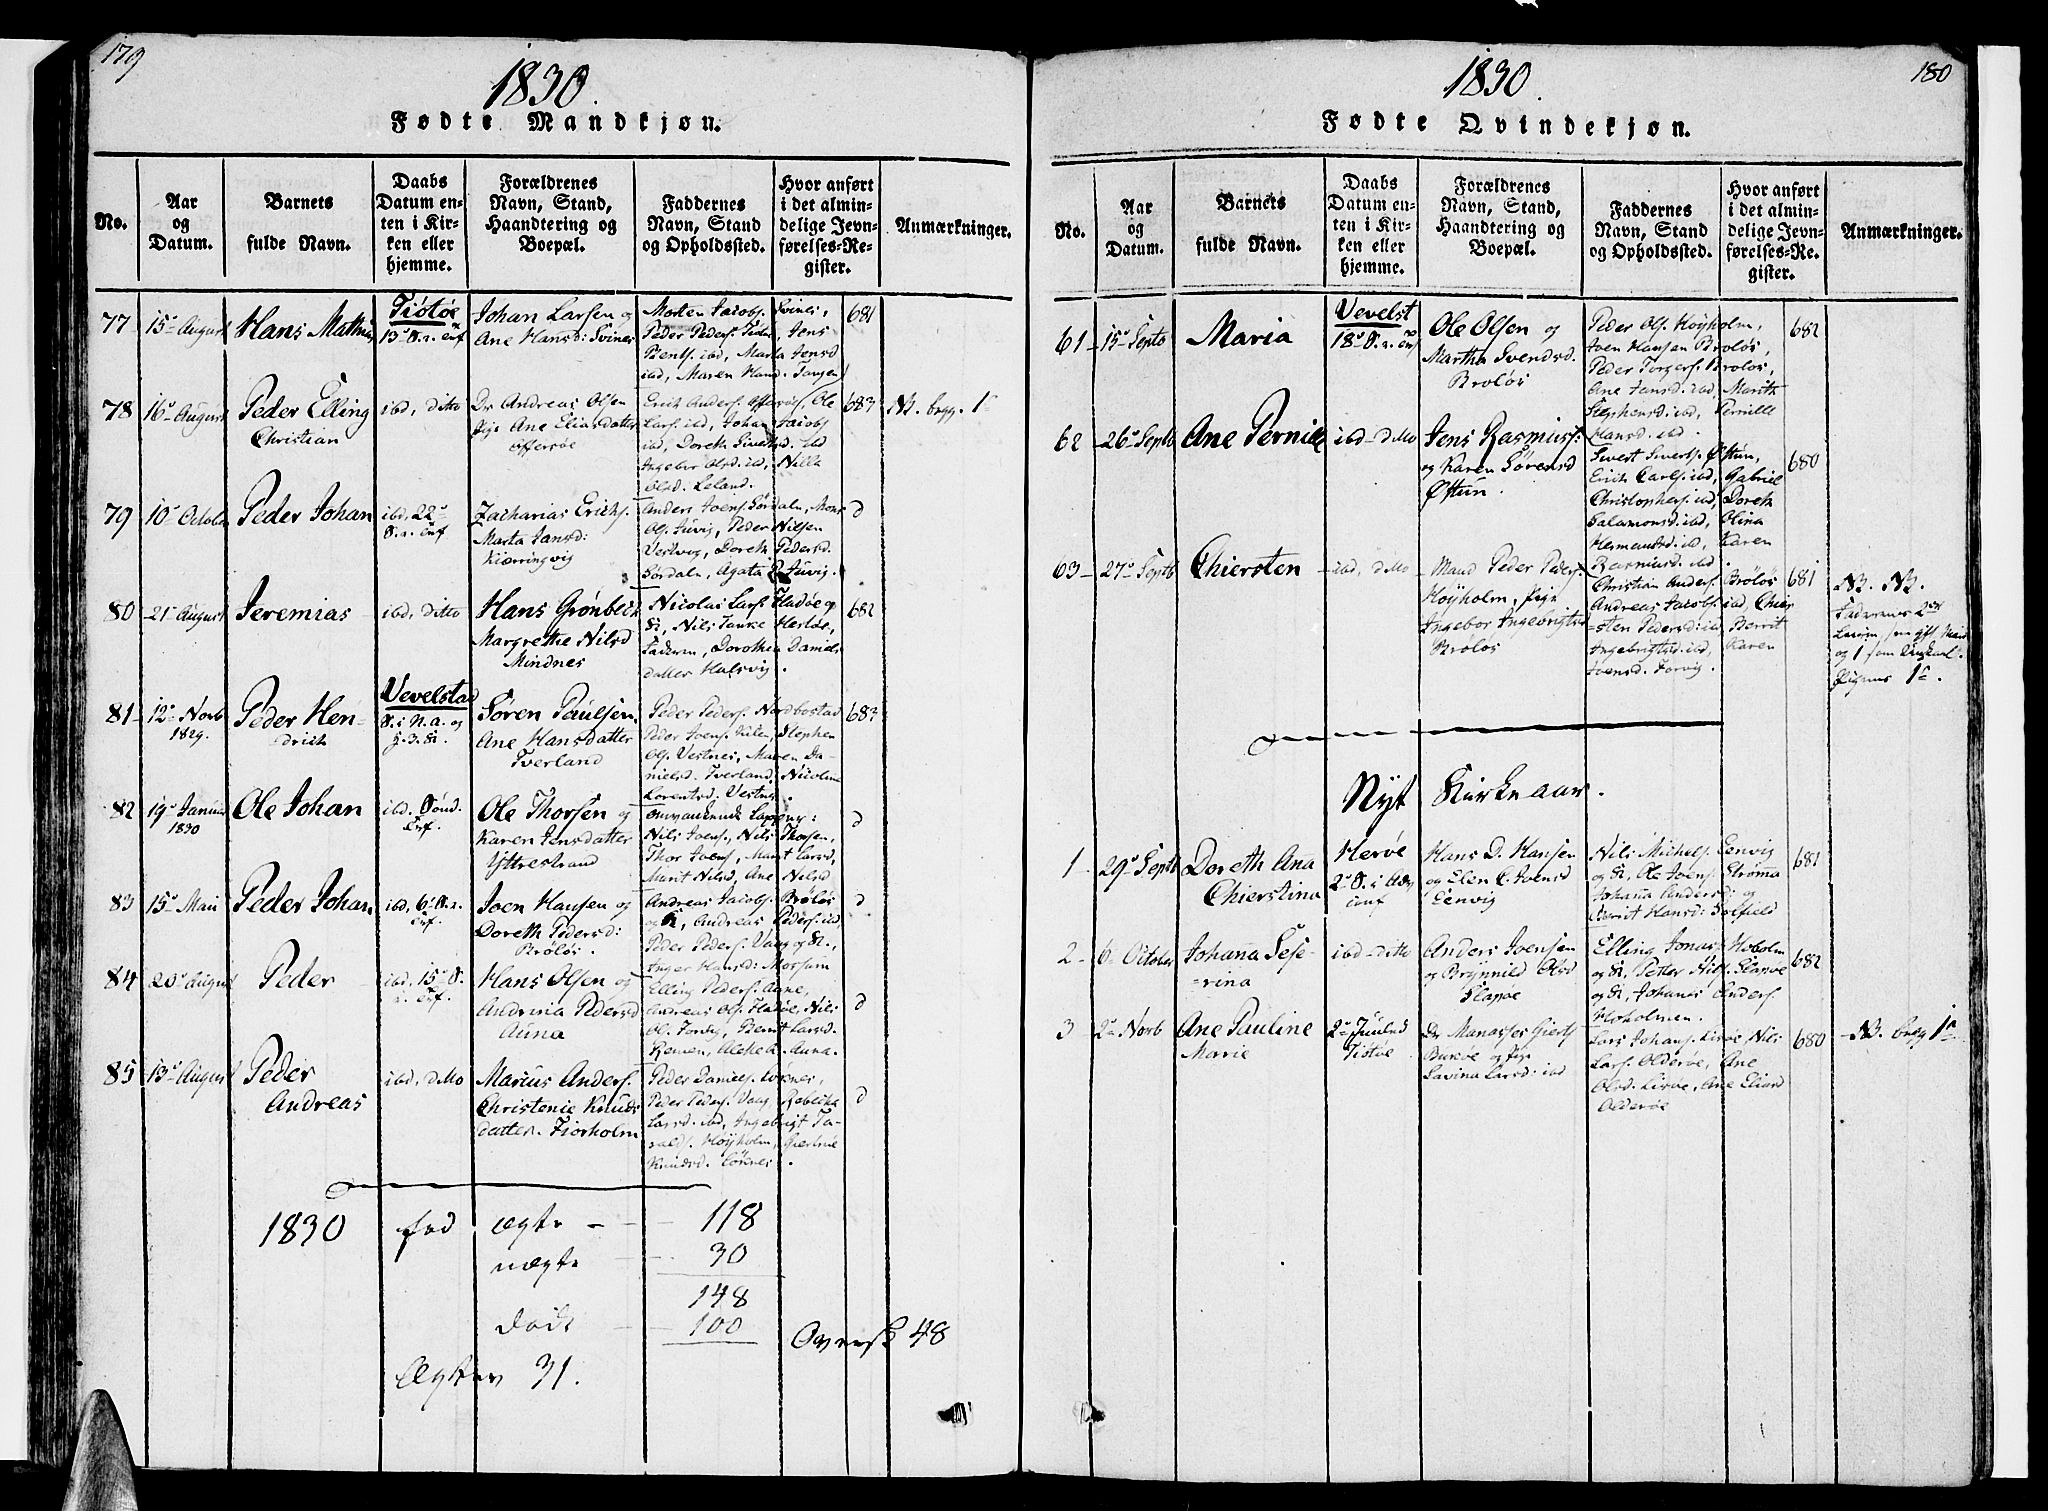 179
1830.
Fødte Mandkjøn.
No.
Aar
og
Datum.
Barnets
fulde Navn.
Daabs
Datum en-
ten i Kir-
ken eller
hjemme.
Forældrenes
Navn, Stand,
Haandtering og
Boepæl.
Faddernes
Navn, Stand
og Opholdssted.
Hvor anført
i det almin-
delige Jevn-
førelses-Re-
gister.
Anmærkninger.
77
15 August
Hans Mathias
Tiøtøe
Johan Larsen og
Ane Hansd: Svines
Morten Jacobs. Svines,
Peder Peders. ibd, Jens
Bents. ibd, Marta Jensd
ibd, Maren Hansd.
681
78
16 August
Peder Elling
Christian
ibd, ditto
Dr Andreas Olsen
Pige Ane Eliasdatter
Offersøe
Erich Anders. Offersøe, Ole
Lars. ibd, Johan Jacobs
ibd, Doreth
Ingebor Olsd. ibd, Nilla
Olsd. Leland.
683
NB. begg. 1
79
10 Octob
Peder Johan
ibd, 22
S. e. Trf
Zacharias Erichs.
Marta Jansd:
Kiærringvig
Anders Joens. Sørdaln, Mons
Ols. Juvig, Peder Nilsen
Vestvig, Doreth Pedersd.
Sørdaln, Agata Juvig.
d
80
21 August
Jeremias
ibd, ditto
Hans Grønbech
Margrethe Nilsd
Mindnes
Nicolai Lars. Fladøe og
K, Nils Hestøe,
Faderen, Dorothea Daniels
datter Halsvig
682
81
12 Novb
1829.
Peder Hen-
drich
Vevelstad
S. i N. a. og
Søren Paulsen
Ane Hansdatter
Tverland
Peder Peders. Nordbostad
Peder Joens. Stephen
Ols. Vestnes, Maren Da-
nielsd. Tverland, Nicoline
Lorentsd. Vestnes.
683
82
19 Januar
1830
Ole Johan
ibd. Sønd.
Trf.
Ole Thorsen og
Karen Jensdatter
Yttrestrand
omvankende Lapper:
Nils Joens., Nils Thorsen,
Thor Joens, Marit Larsd,
Marit Nilsd, Ane Nilsd
d
83
15 Mai
Peder Johan
ibd, 6 S. e.
Trf.
Joen Hansen og
Doreth Pedersd:
Brøløs.
Andreas Jacobs. Brøløs
og K, Andreas Peders. ibd,
Peder Peders. Vaag og K.,
Inger Hansd:
d
84
20 August
Peder
ibd, 15 S.
e. Trf.
Hans Olsen og
Andrina Pedersd
Auna
Elling Peders. Aune,
Andreas Ols. Fladøe, Nils
Ols. Forvig, Berrit Larsd.
Remen, Aleth Auna.
d
85
13 August
Peder
Andreas
ibd, ditto
Marius Anders.
Christenie Knuds
datter. Fiorholm
Peder Daniels. Løknes,
Peder Peders. Vaag, Rebekka
Larsd. ibd, Ingebrigt To-
Høyholm, Giertrue
Knudsd. Løknes.
d
1830 fød ægte - 118
uægte 30
148
døde 100
Oversk 48
Ægtev 31.
180
1830.
Fødte Qvindekjøn.
No.
Aar
og
Datum.
Barnets
fulde Navn.
Daabs
Datum en-
ten i Kir-
ken eller
hjemme.
Forældrenes
Navn, Stand,
Haandtering og
Boepæl.
Faddernes
Navn, Stand
og Opholdssted.
Hvor anført
i det almin-
delige Jevn-
førelses-Re-
gister.
Anmærkninger.
61
15 Septb
Maria
Vevelst
18 S. e. Trf
Ole Olsen og
Martha Svendsd.
Brøløs
Peder Ols. Høyholm,
Joen Hansen Brøløs,
Peder Torgers. Brøløs,
Ane Jansd. ibd, Marith
Stephensd. ibd, Pernille
Hansd. ibd.
682
62
26 Septb
Ane Pernille
ibd - ditto
Jens Rasmus:
og Karen Sørensd
Østun.
Sivert Siverts. Østun,
Erich Carls. ibd, Gabriel
Christophers. ibd, Doreth
Salamonsd. ibd, Olina
Hermansd. ibd, Karen
Rasmusd. ibd.
680
63
27 Septb
Chiersten
ibd, ditto
Mand Peder Peders.
Høyholm, Pige
Ingebor Ingebrigtsd
Brøløs
Christian Anders. Brøløs
Andreas Jacobs. ibd, Chier
=sten Pedersd: ibd, Berrit
Ingebrigtsd. ibd, Karen
Joensd. Forvig.
681
NB. NB.
Faderens 2den
som gift Mand
og 1 som Ungkarl.
Pigens 1.
Nyt Kirkeaar.
1
29 Septb
Doreth Ana
Chierstina
Herøe
2 S. i Adv
Hans D. Hansen
og Elen C. Joensd
Eenvig
Nils Michels. Eenvig
og K, Ole Joens. Strøma
Johana Andersd: og
Berrit Hansd: Solfield
681
2
6 October
Johana Sese-
=rina
ibd - ditto
Anders Joensen
og Brynnild Olsd
Slapøe
Elling Jonas. Hoholm
og K, Petter Nils. Slapøe
og K, Johanes Anders.
Hoholmen.
682
3
2 Novb
Ane Pauline
Marie
2 Juuled
Tiøtøe
Dr Manasses Gierts
og Pige
Lavina Larsd: ibd
Lars Johans. Nils
Lars. Olderøe, Ane
Ane Eliasd
Olderøe
680
NB. begg 1